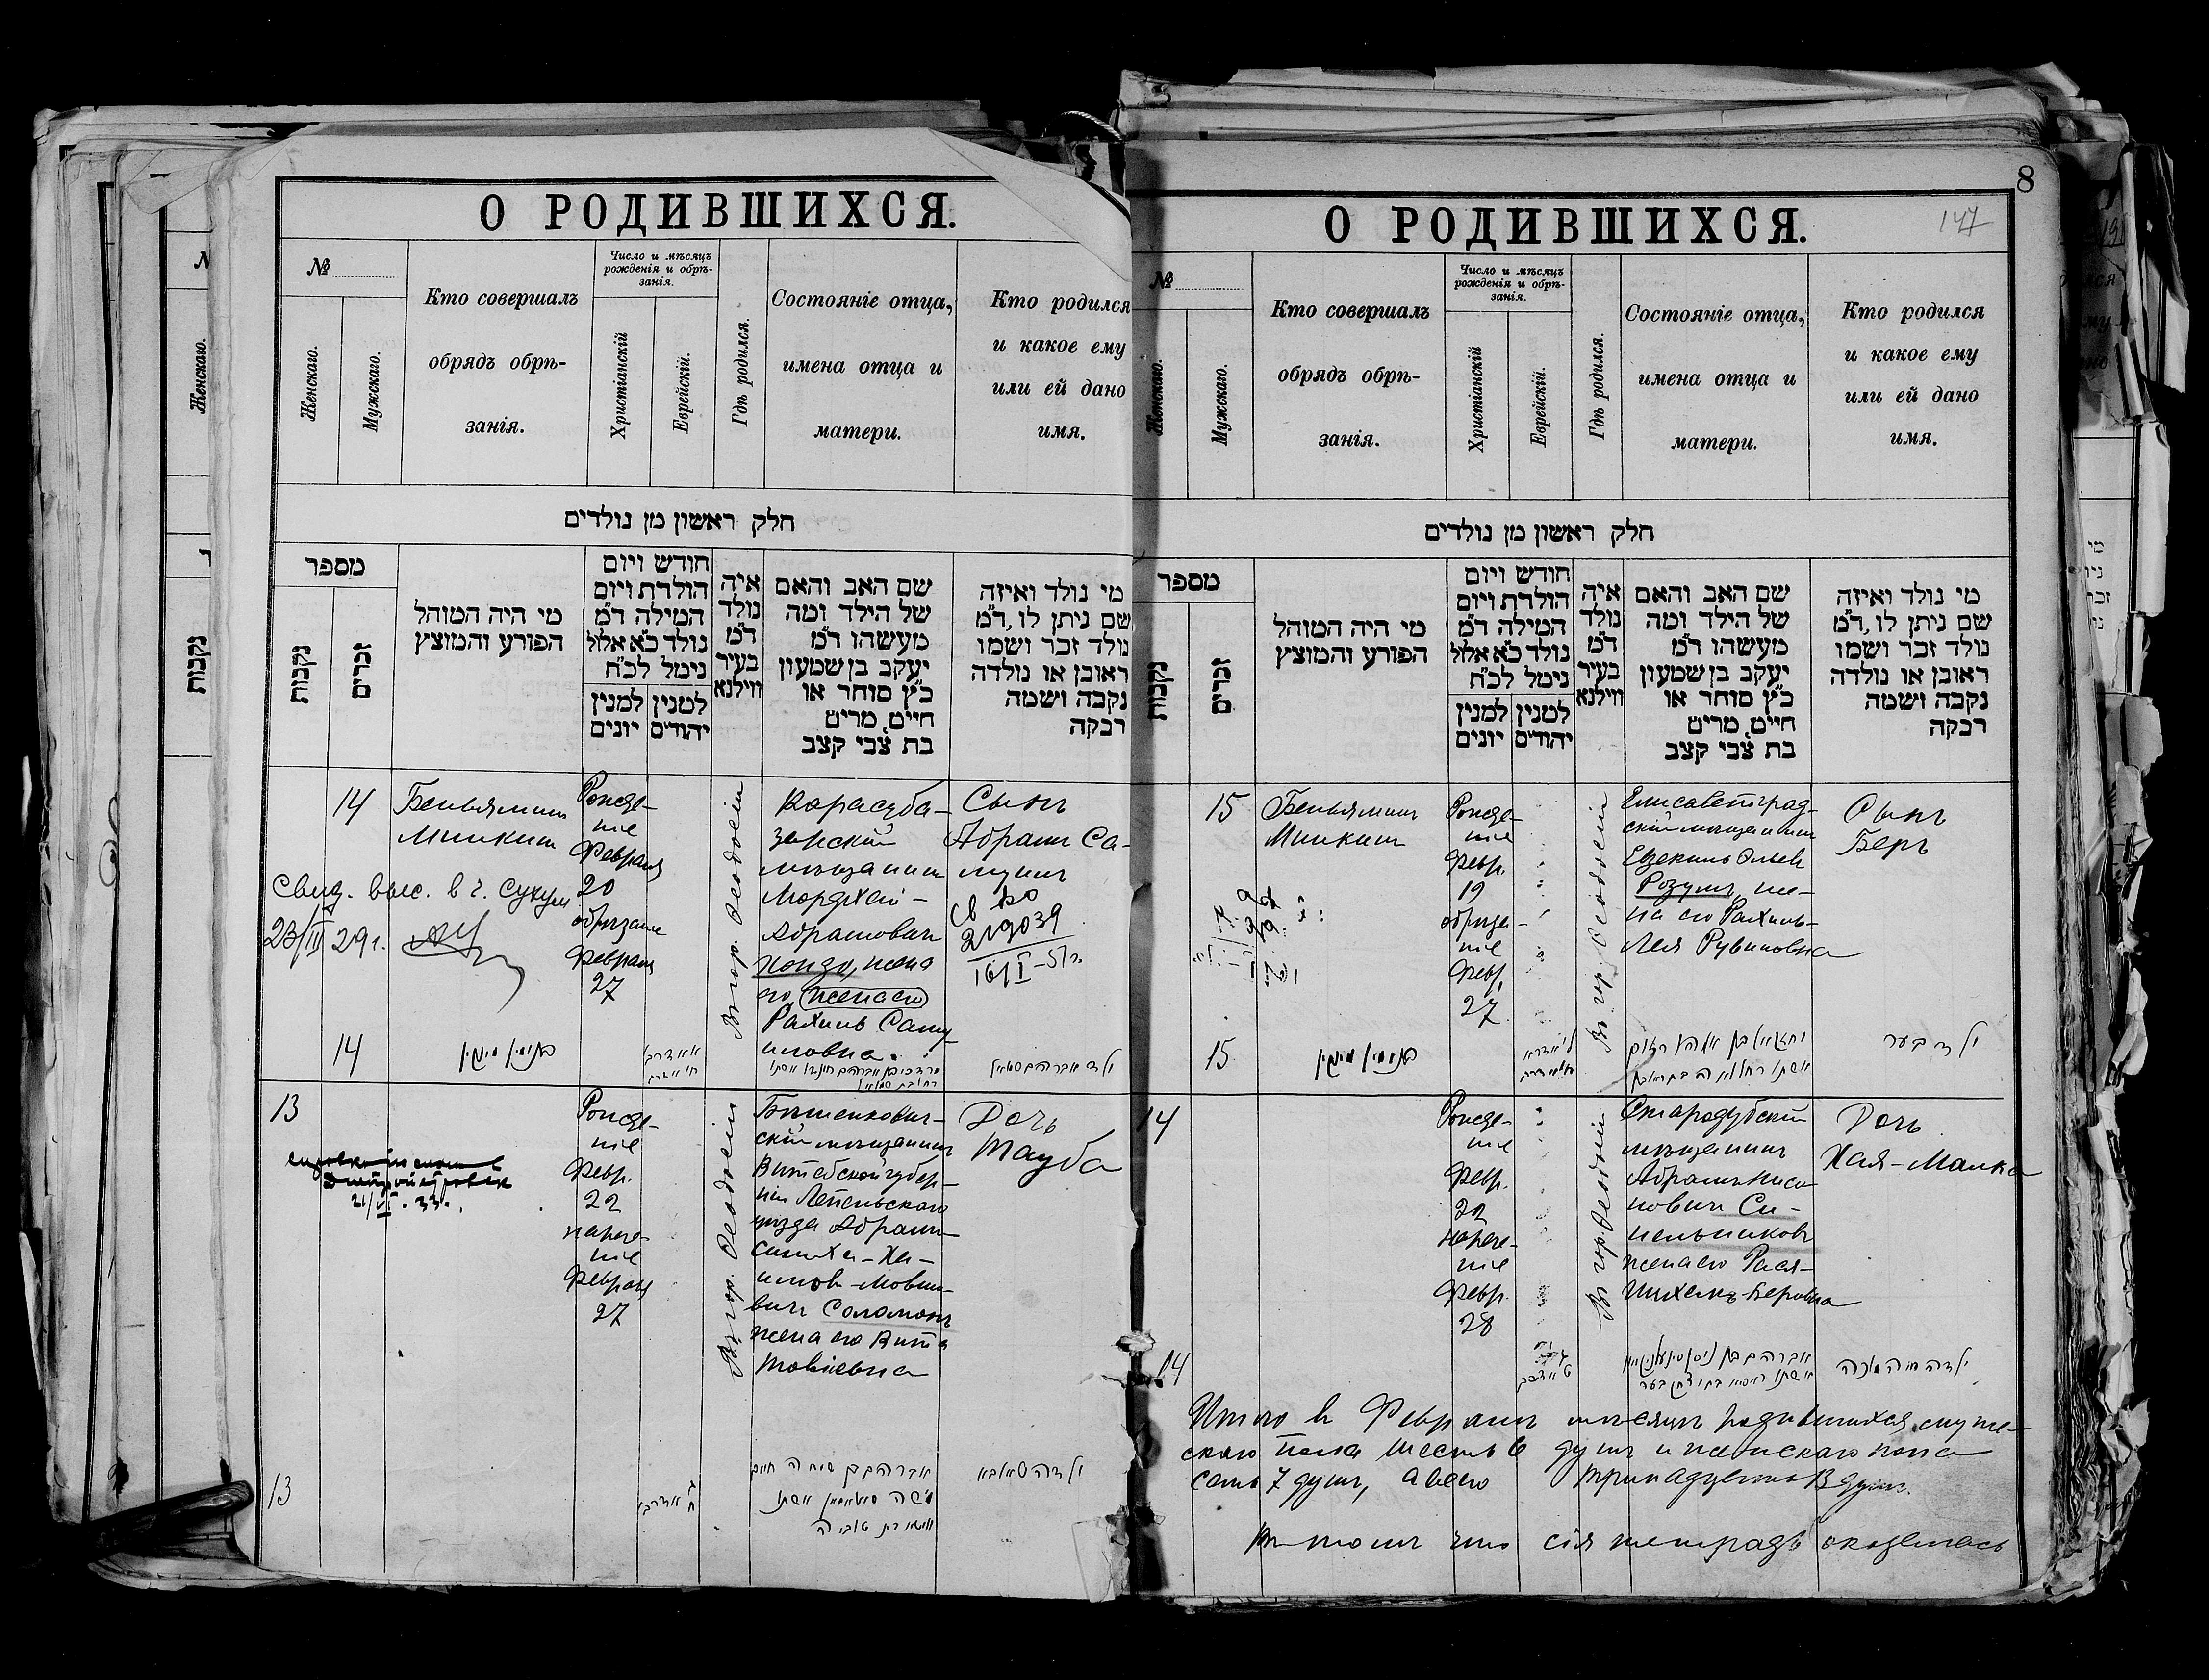 О РОДИВШИХСЯ.
№
Женскаго.
Мужскаго.
Кто совершалъ
обрядъ обрѣ-
занія.
Число и мѣсяцъ
рожденія и обрѣ-
занія.
Христіанскій
Еврейскій.
Гдѣ родился.
Состояніе отца,
имена отца и
матери.
Кто родился
и какое ему
или ей дано
имя.
חלק ראשון מן נולדים
מספר
נקבות
זכרים
מי היה המוהל
הפורע והמוצץ
חודש ויום
הולדת ויום
המילה ד״מ
נולד כ״א אלול
נימל לכ״ח
למנין למנין
יהודים יונים
איה
נולד
ד״מ
בעיר
ווילנא
שם האב והאם
של הילד ומה
מעשהו ד״מ
יעקב בן שמעון
כ״ץ סוחר או
חייט, מרים
בת צבי קצב
מי נולד ואיזה
שם ניתן לו, ד״מ
נולד זכר ושמו
ראובן או נולדה
נקבה ושמה
רבקה
14
Беньяминъ
Минкинъ
Свид. выс. в г. Сухум
23/III 29 г.
Рожде-
ніе
Февраля
20
обрѣзаніе
Февраля
27
Въ гор. Ѳеодосіи
Карасуба-
зарскій
мѣщанинъ
Мордхей-
Абрамовичъ
Хондо, жена
его (жена его)
Рахиль Саму
иловна.
Сынъ
Абрамъ Са-
муилъ
14
בנימין מינקין
ילד אברהם שמואל
13
21/VI . 33.
Рожде-
ніе
Февр.
22
нарече-
ніе
Февраля
27
Въ гор. Ѳеодосіи
Бѣшенкович-
скій мѣщанинъ
Витебской губер-
ніи Лепельскаго
уѣзда Абрамъ-
Симха-Ха-
имов-Мовшо-
вичъ Соломонъ
жена его Вита
Товіевна
Дочь
Тауба
13
О РОДИВШИХСЯ.
8
147
№
Женскаго.
Мужскаго.
Кто совершалъ
обрядъ обрѣ-
занія.
Число и мѣсяцъ
рожденія и обрѣ-
занія.
Христіанскій
Еврейскій.
Гдѣ родился.
Состояніе отца,
имена отца и
матери.
Кто родился
и какое ему
или ей дано
имя.
חלק ראשון מן נולדים
מספר
נקבות
זכרים
מי היה המוהל
הפורע והמוצץ
חודש ויום
הולדת ויום
המילה ד״מ
נולד כ״א אלול
נימל לכ״ח
למנין למנין
יהודים יונים
איה
נולד
ד״מ
בעיר
ווילנא
שם האב והאם
של הילד ומה
מעשהו ד״מ
יעקב בן שמעון
כ״ץ סוחר או
חייט, מרים
בת צבי קצב
מי נולד ואיזה
שם ניתן לו, ד״מ
נולד זכר ושמו
ראובן או נולדה
נקבה ושמה
רבקה
15
Беньяминъ
Минкинъ
Рожде-
ніе
Февр.
19
обрѣза-
ніе
Февр.
27
Въ гор. Ѳеодосіи
Елисаветград-
скій мѣщанинъ
Евзекиль Эльев
Розумъ, же-
на его Рахиль-
Лея Рувиновна
Сынъ
Беръ
15
בנימין מינקין
ילד בער
14
Рожде-
ніе
Февр.
22
нарече-
ніе
Февр.
28
Въ гор. Ѳеодосіи
Стародубскій
мѣщанинъ
Абрамъ Ниса-
новичъ Си-
нельниковъ
жена его Рася-
Михель-Беровна
Дочь
Хая-Малка
14
Итого в Февралѣ мѣсяцѣ родившихся муже-
скаго пола шесть 6 душъ и женскаго пола
семь 7 душъ, а всего тринадцать 13 душъ.
Въ томъ что сія тетрадь